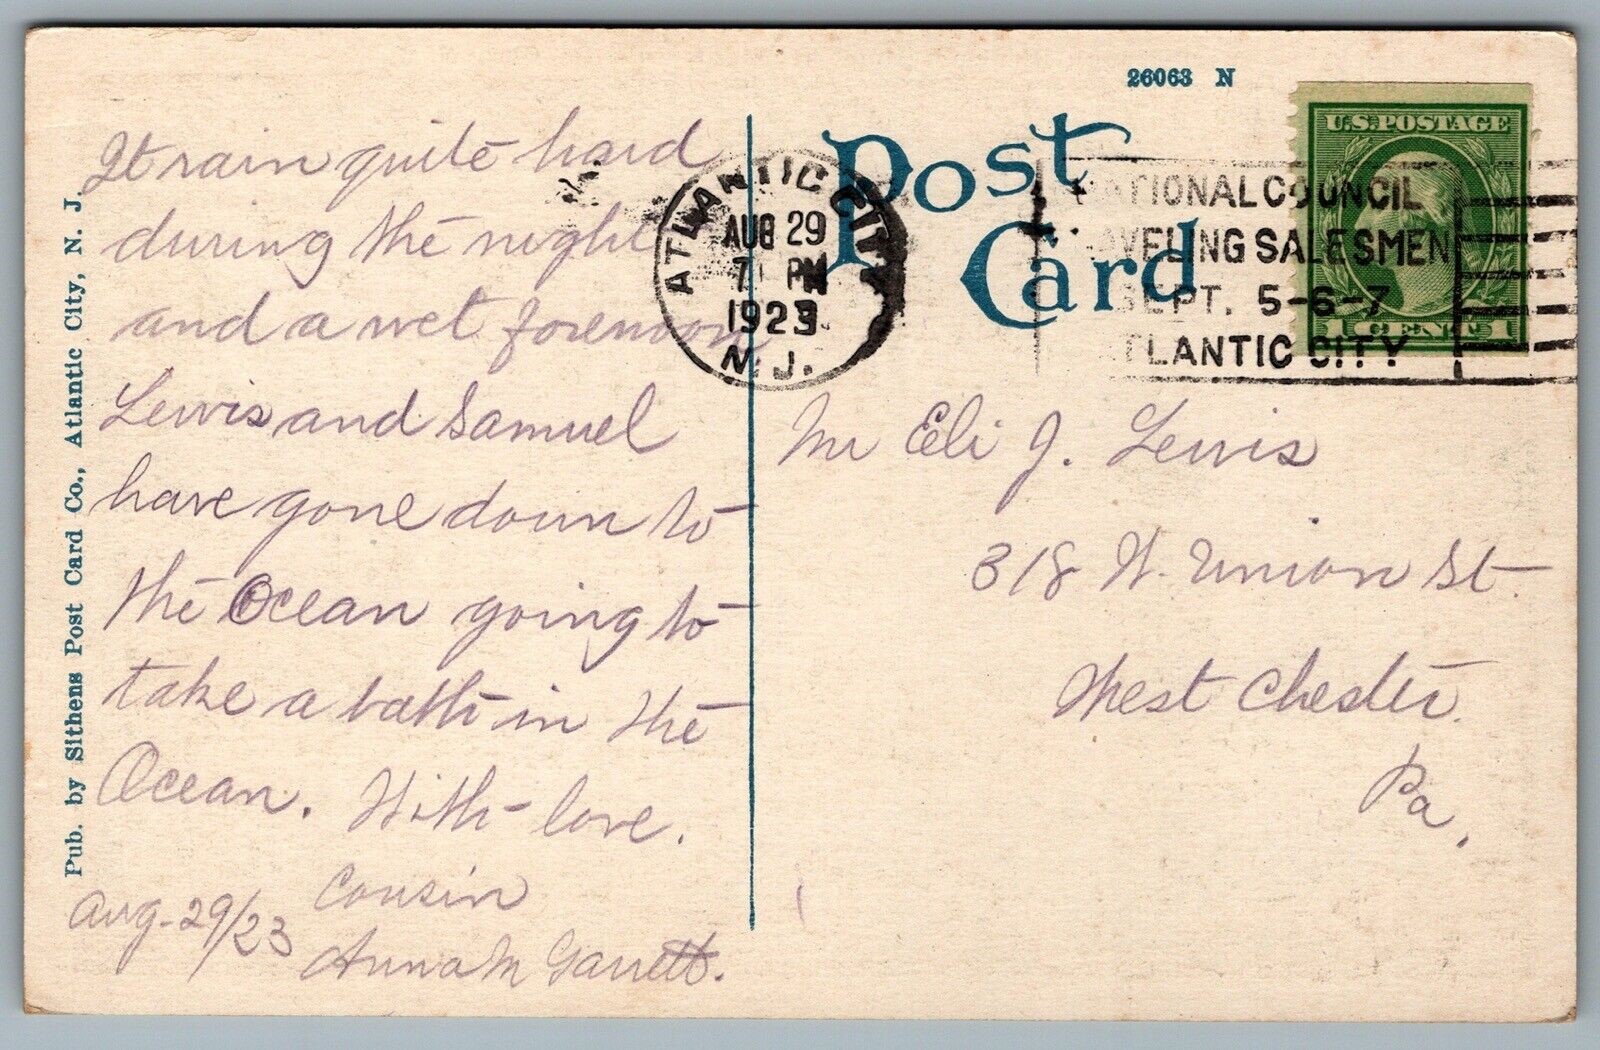 26063 N
Post
Card
U.S. POSTAGE
1 CENT 1
ATLANTIC CITY
AUG 29
7 PM
1923
N.J.
NATIONAL COUNCIL
TRAVELING SALESMEN
SEPT. 5-6-7
ATLANTIC CITY
Pub. by Sithens Post Card Co., Atlantic City, N. J.
It rain quite hard
during the night
and a wet forenoon
Lewis and Samuel
have gone down to
the Ocean going to
take a bath in the
Ocean. With love.
Cousin
Aug-29/23
Anna M Garrett.
Mr Eli J. Lewis
318 W. Union St.
West Chester.
Pa.